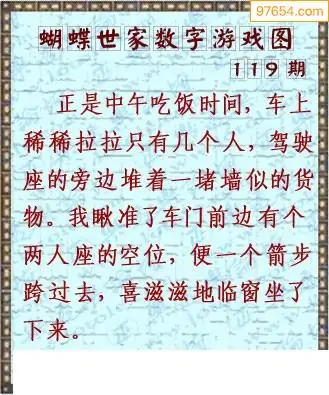 97654.com
蝴蝶世家数字游戏图
119期
正是中午吃饭时间，车上
稀稀拉拉只有几个人，驾驶
座的旁边堆着一堵墙似的货
物。我瞅准了车门前边有个
两人座的空位，便一个箭步
跨过去，喜滋滋地临窗坐了
下来。